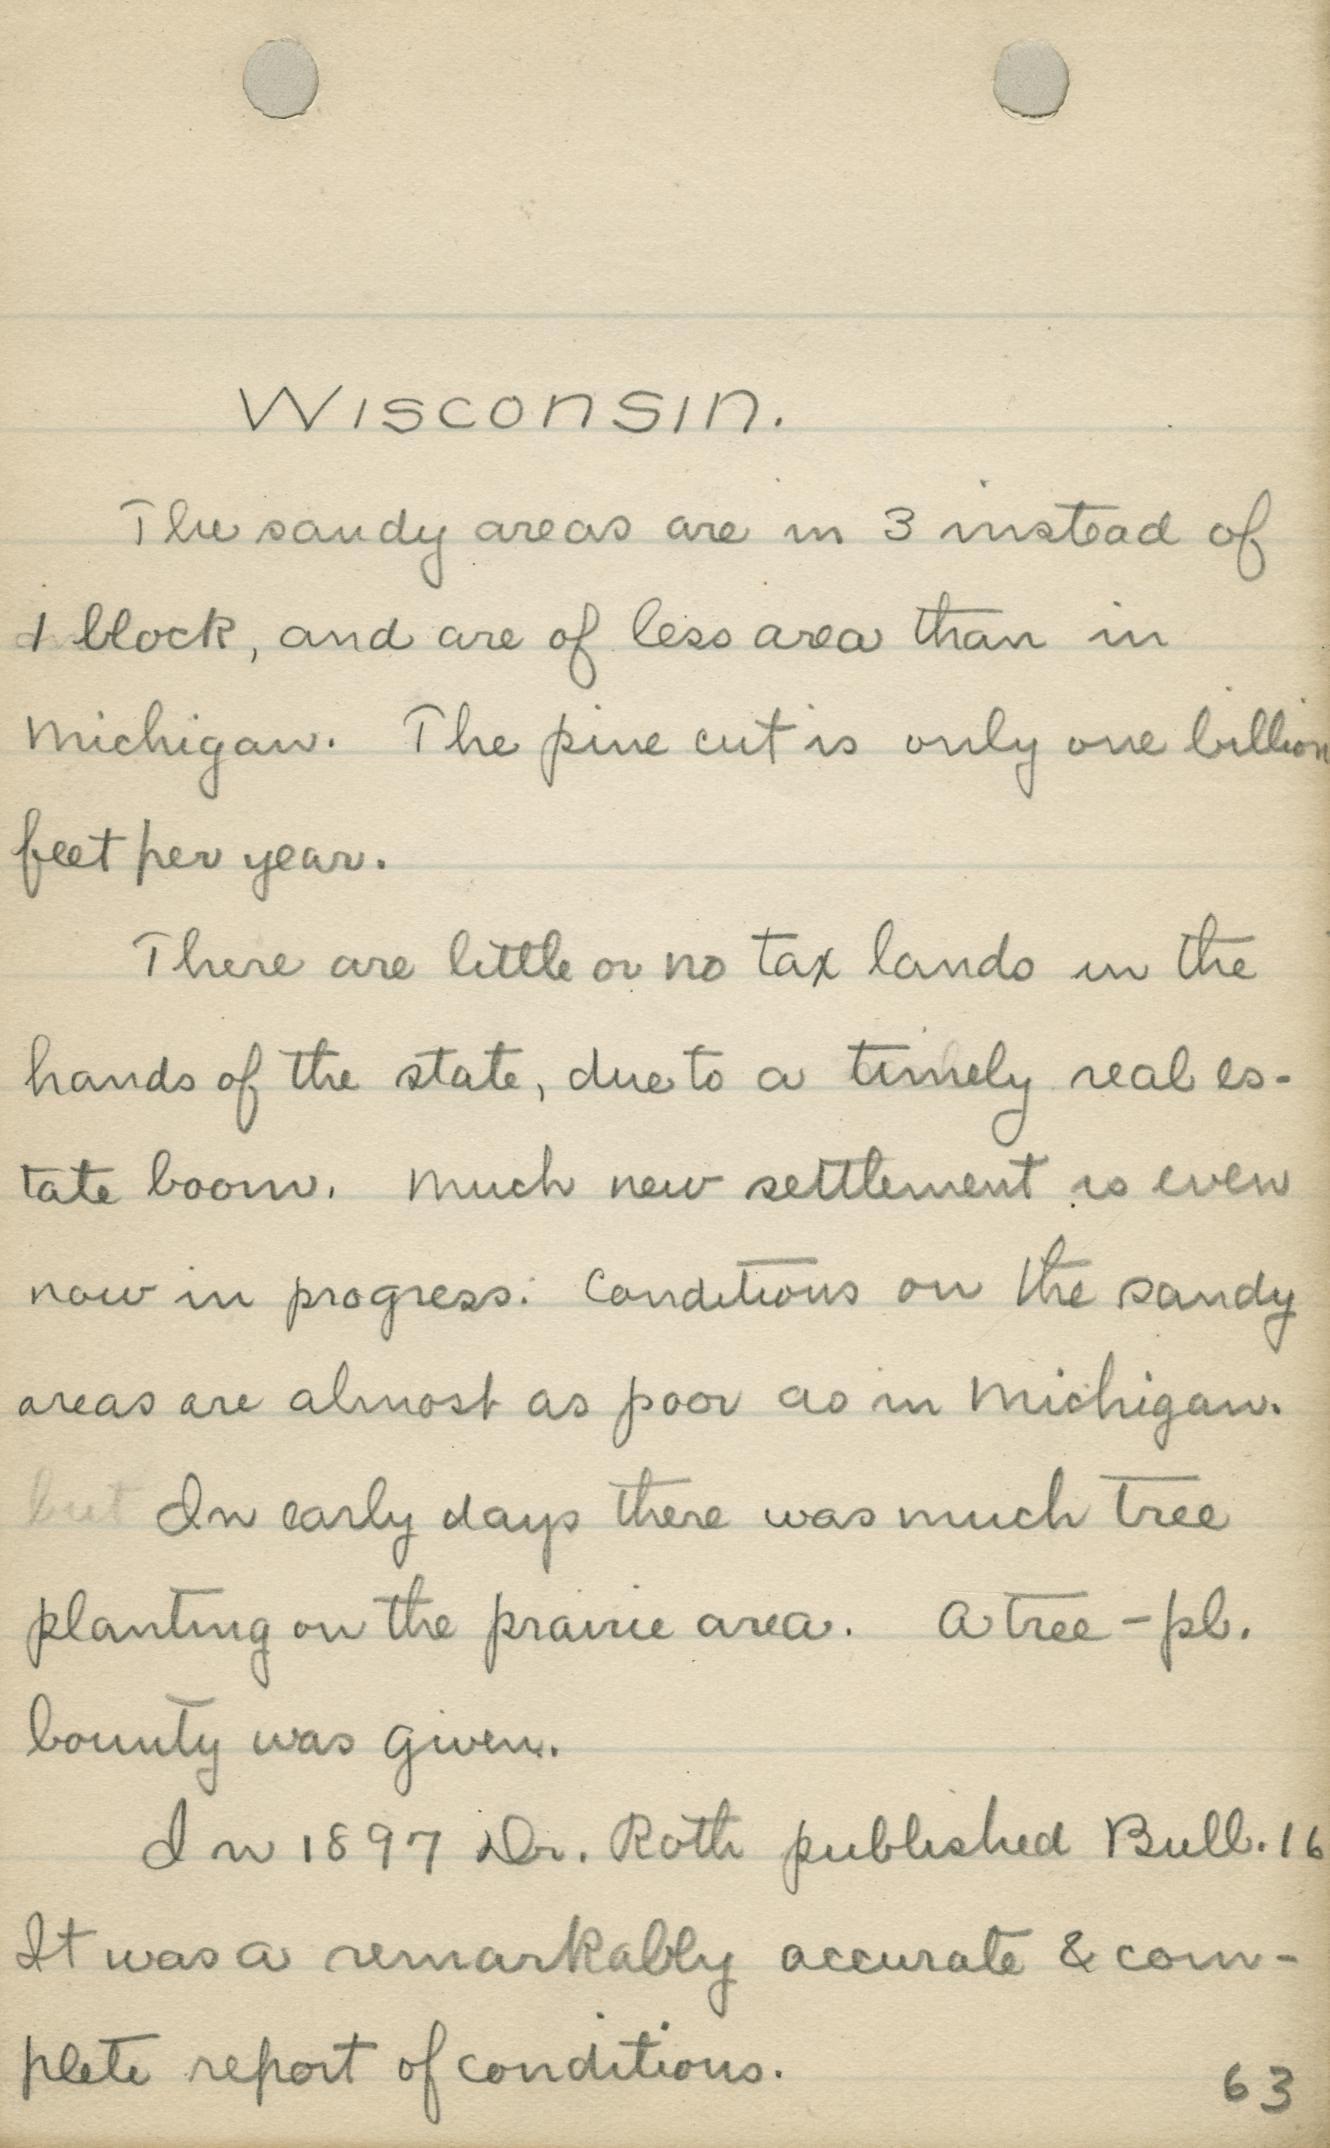 Wisconsin.
The sandy areas are in 3 instead of
1 block, and are of less area than in
Michigan. The pine cut is only one billion
feet per year.
There are little or no tax lands in the
hands of the state, due to a timely real es-
tate boom. Much new settlement is even
now in progress. Conditions on the sandy
areas are almost as poor as in Michigan.
but In early days there was much tree
planting on the prairie area. A tree-pl.
bounty was given.
In 1897 Dr. Roth published Bull. 16
It was a remarkably accurate & com-
plete report of conditions.
63